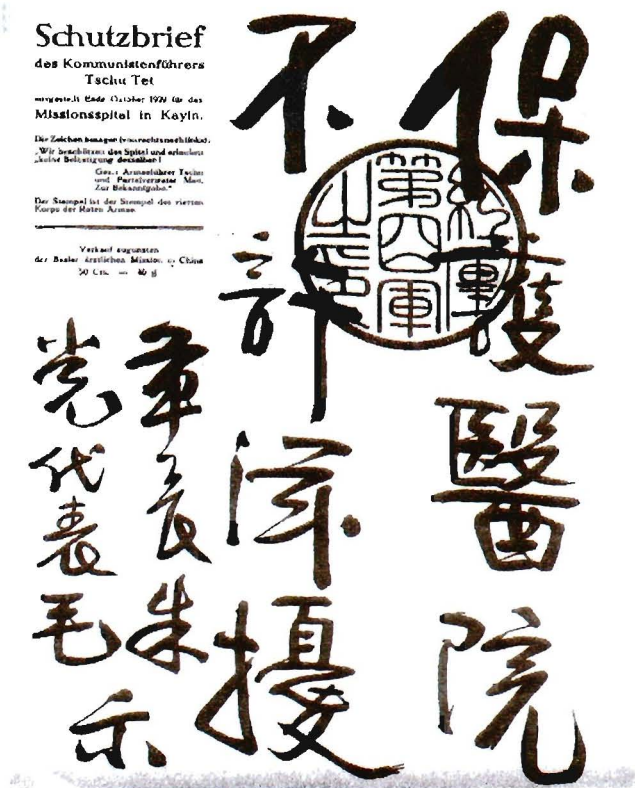 Schutzbrief
des Kommunistenführers
Tschu Tet
ausgestellt Ende October 1929 für das
Missionsspital in Kayin.
Die Zeichen besagen (von rechts nach links):
„Wir beschützen das Spital und erlauben
„keine Belästigung desselben!
Gez.: Armeeführer Tschu
und Parteivertreter Mao.
Zur Bekanntgabe."
Der Stempel ist der Stempel des vierten
Korps der Roten Armee.
Verkauf zugunsten
der Basler ärztlichen Mission in China
50 Cts. = 40
保護醫院
不許滋擾
軍長朱
党代表毛
示
紅軍
第四軍
之印